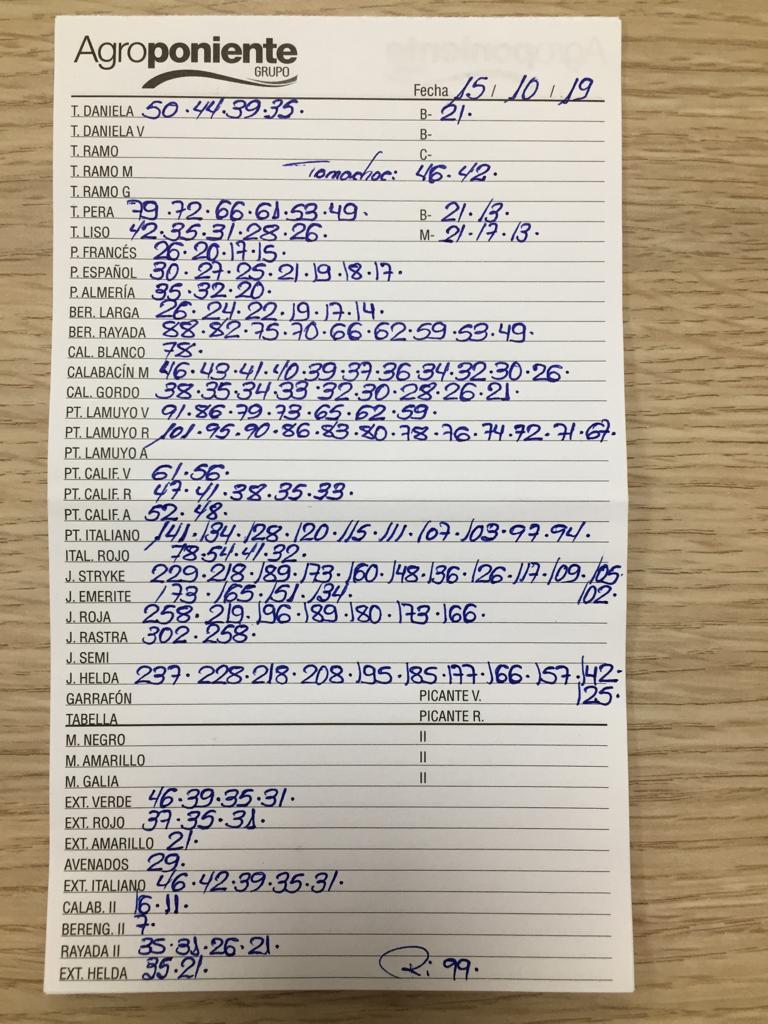 Agroponiente
GRUPO
Fecha 15 / 10 / 19
T. DANELA 50.44.39.35. B- 21.
T. DANIELA V B-
T. RAMO C-
T. RAMO M Tomachoc: 46.42.
T. RAMO G
T. PERA 79.72.66.61.53.49. B- 21.13.
T. LISO 42.35.31.28.26. M- 21.17.13.
P. FRANCÉS 26.20.17.15.
P. ESPAÑOL 30.27.25.21.19.18.17.
P. ALMERÍA 35.32.20.
BER. LARGA 26.24.22.19.17.14.
BER. RAYADA 88.82.75.70.66.62.59.53.49.
CAL. BLANCO 78.
CALABACÍN M 46.43.41.40.39.37.36.34.32.30.26.
CAL. GORDO 38.35.34.33.32.30.28.26.21.
PT. LAMUYO V 91.86.79.73.65.62.59.
PT. LAMUYO R 101.95.90.86.83.80.78.76.74.72.71.67.
PT. LAMUYO A
PT. CALIF. V 61.56.
PT. CALIF. R 47.41.38.35.33.
PT. CALIF. A 52.48.
PT. ITALIANO 141.134.128.120.115.111.107.103.97.94.
ITAL. ROJO 78.54.41.32.
J. STRYKE 229.218.189.173.160.148.136.126.117.109.105.
J. EMERITE 173.165.151.134. 102.
J. ROJA 258.219.196.189.180.173.166.
J. RASTRA 302.258.
J. SEMI
J. HELDA 237.228.218.208.195.185.177.166.157.142.
GARRAFÓN PICANTE V. 125.
TABELLA PICANTE R.
M. NEGRO II
M. AMARILLO II
M. GALIA II
EXT. VERDE 46.39.35.31.
EXT. ROJO 37.35.31.
EXT. AMARILLO 21.
AVENADOS 29.
EXT. ITALIANO 46.42.39.35.31.
CALAB. II 16.11.
BERENG. II 7.
RAYADA II 35.31.26.21.
EXT. HELDA 35.21. R: 99.